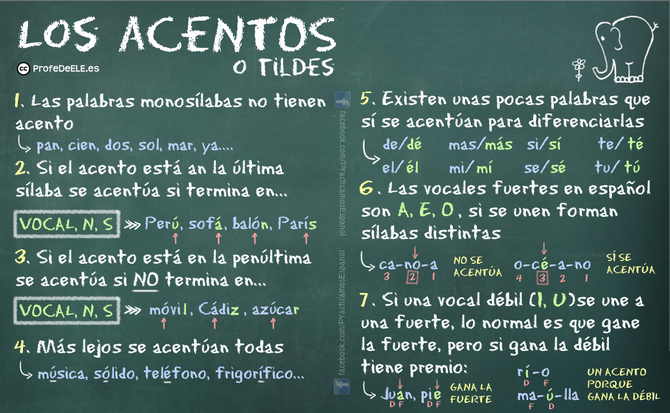 LOS ACENTOS
O TILDES
cc ProfeDeELE.es
1. Las palabras monosílabas no tienen
acento
pan, cien, dos, sol, mar, ya....
2. Si el acento está an la última
sílaba se acentúa si termina en...
VOCAL, N, S >>> Perú, sofá, balón, París
3. Si el acento está en la penúltima
se acentúa si NO termina en...
VOCAL, N, S >>> móvil, Cádiz, azúcar
4. Más lejos se acentúan todas
música, sólido, teléfono, frigorífico...
facebook.com/PracticamosEspanol
facebook.com/PracticamosEspanol
5. Existen unas pocas palabras que
sí se acentúan para diferenciarlas
de/dé mas/más si/sí te/té
el/él mi/mí se/sé tu/tú
6. Las vocales fuertes en español
son A, E, O, si se unen forman
sílabas distintas
ca-no-a NO SE o-cé-a-no SÍ SE
3 2 1 ACENTÚA 4 3 2 1 ACENTÚA
7. Si una vocal débil (I, U)se une a
una fuerte, lo normal es que gane
la fuerte, pero si gana la débil
tiene premio:
Juan, pie GANA LA
DF DF FUERTE
rí-o UN ACENTO
D F PORQUE
ma-ú-lla GANA LA DÉBIL
F D